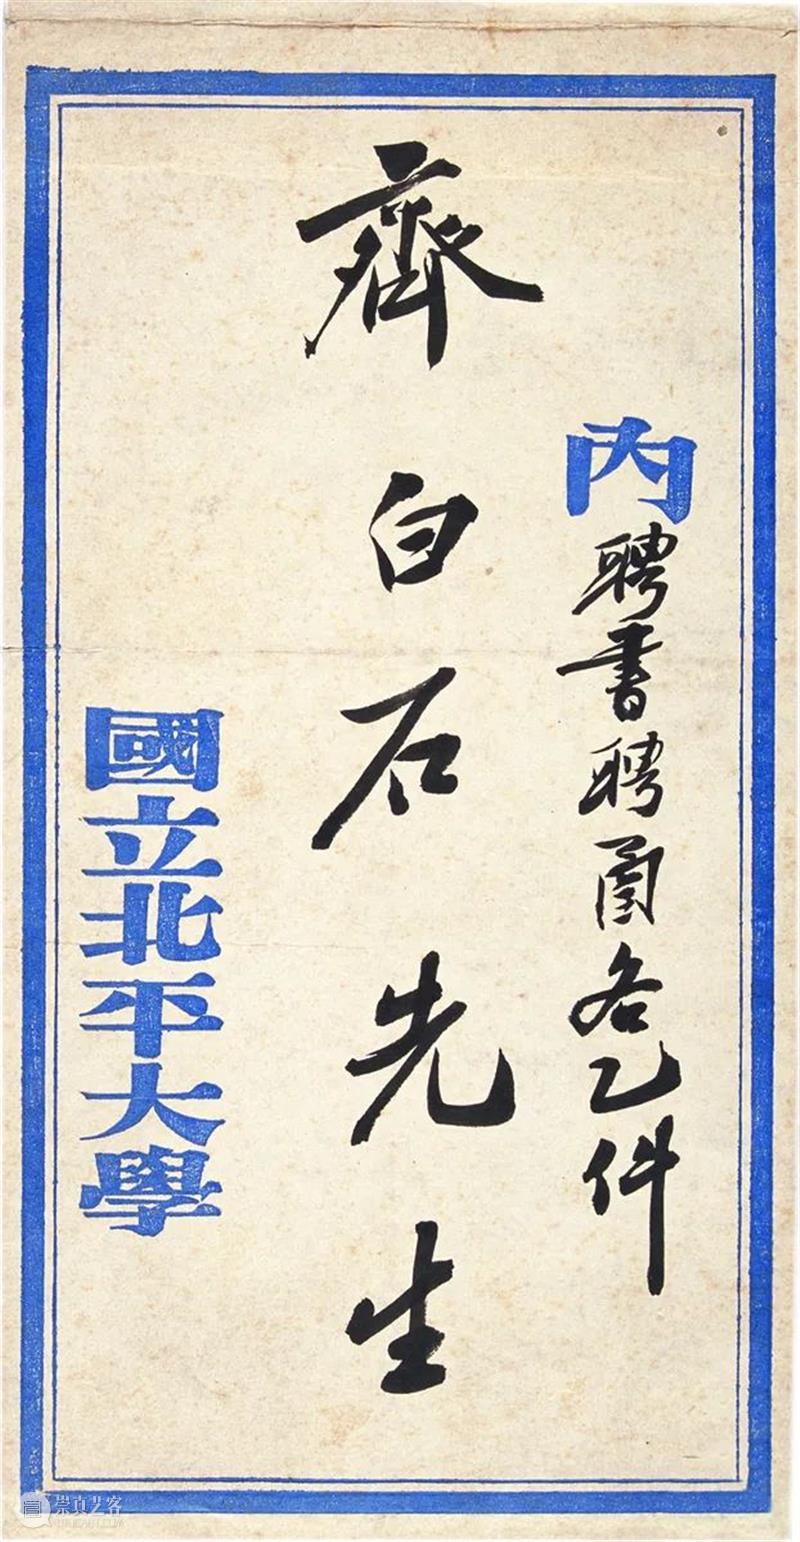 內聘書聘函各乙件
齊白石先生
國立北平大學
崇真艺客